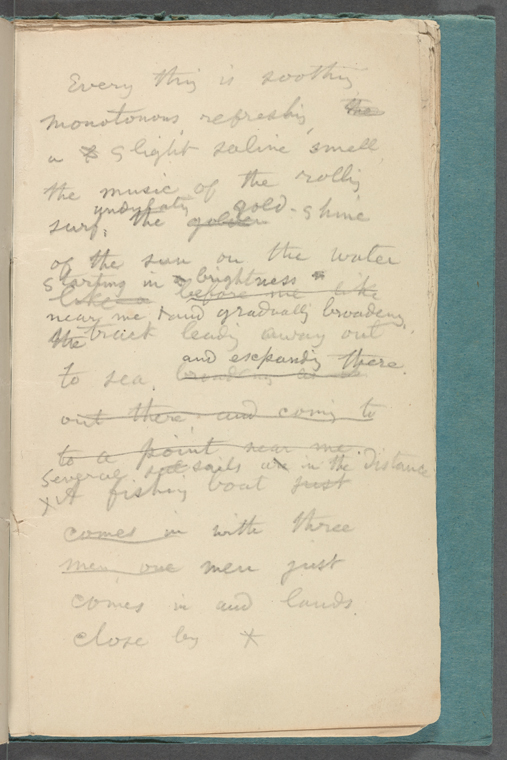 Every thing is soothing
monotonous, refreshing, the
a slight saline smell,
the music of the rolling
undulating gold-shine
surf, the golden
of the sun on the water
Starting in brightness
like a before me like
near me & and gradually broadening,
the track leads away out
and expanding there.
to sea,
out there and coming to
to a point near me.
Several sails are in the distance
x A fishing boat just
comes in with three
men, one men just
comes in and lands
close by x